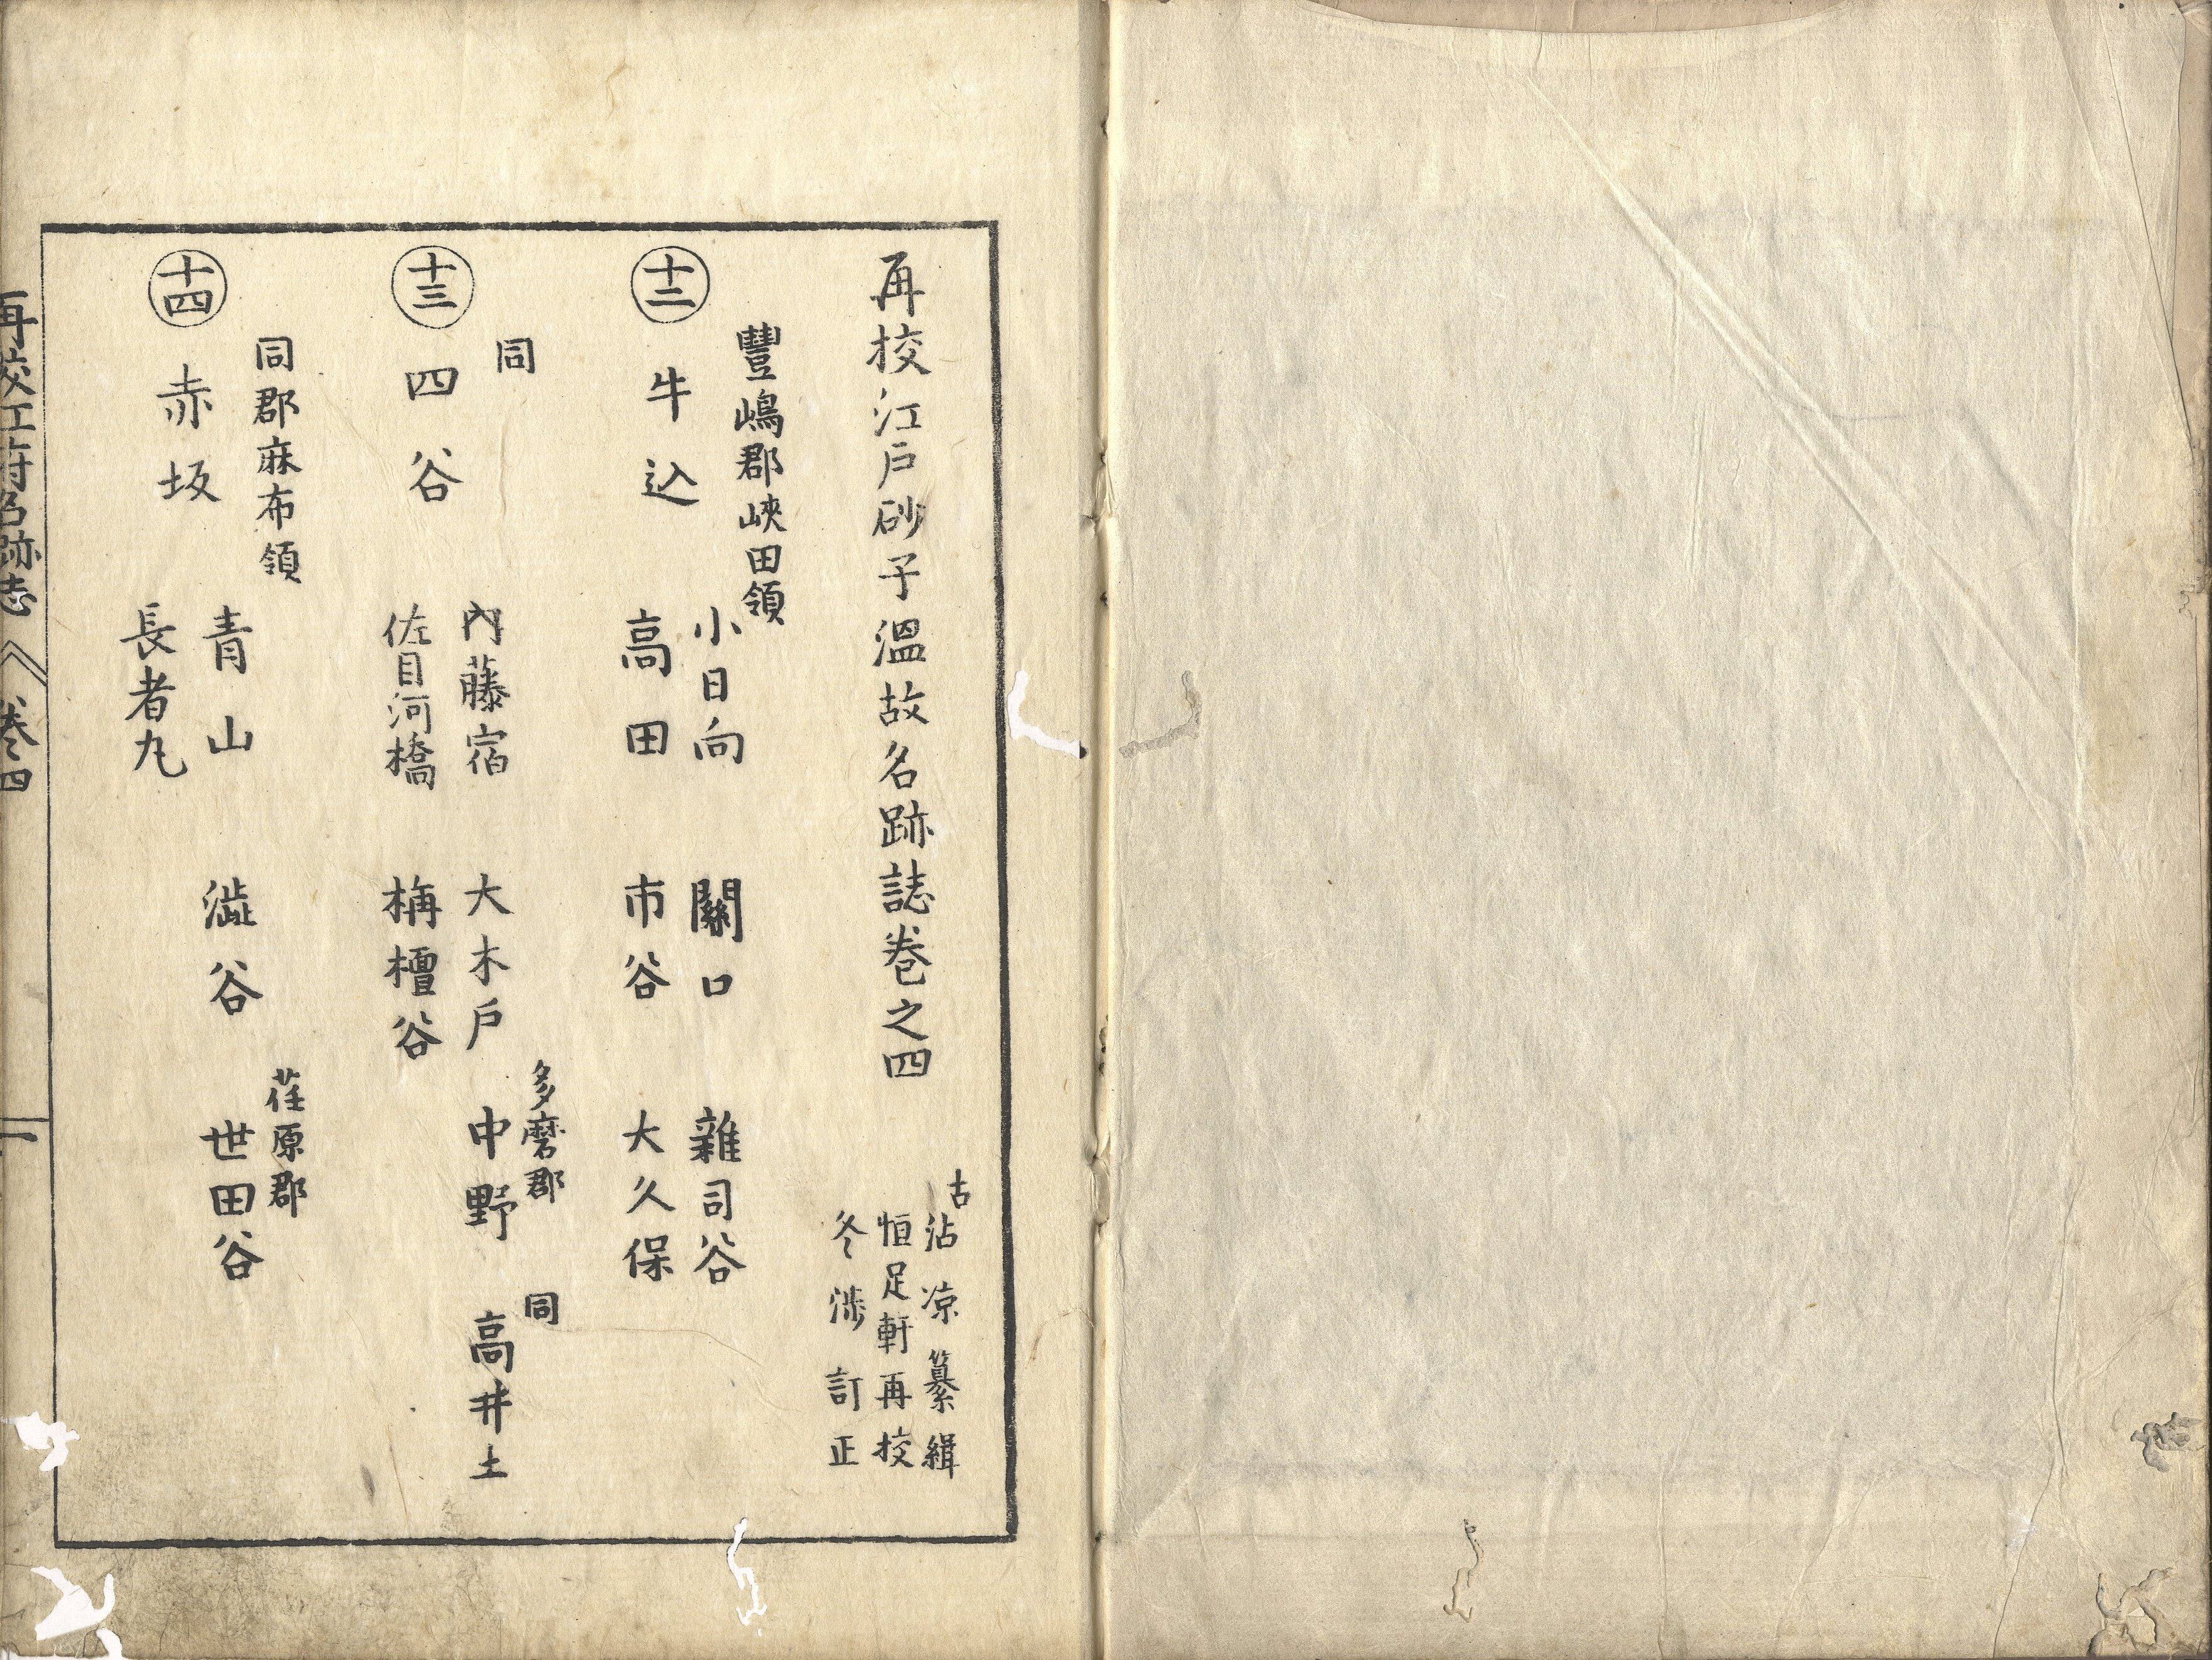 再校江戸砂子温故名跡誌巻之四
古沾凉纂緝
恒足軒再校
冬渉訂正
豐嶋郡峽田領
十二 牛込
小日向 關口 雜司谷
高田 市谷 大久保
同
十三 四谷
多磨郡 同
内藤宿 大木戸 中野 高井土
佐目河橋 栴檀谷
同郡麻布領
十四 赤坂
荏原郡
青山 澁谷 世田谷
長者丸
再校江府名跡志 巻四 一